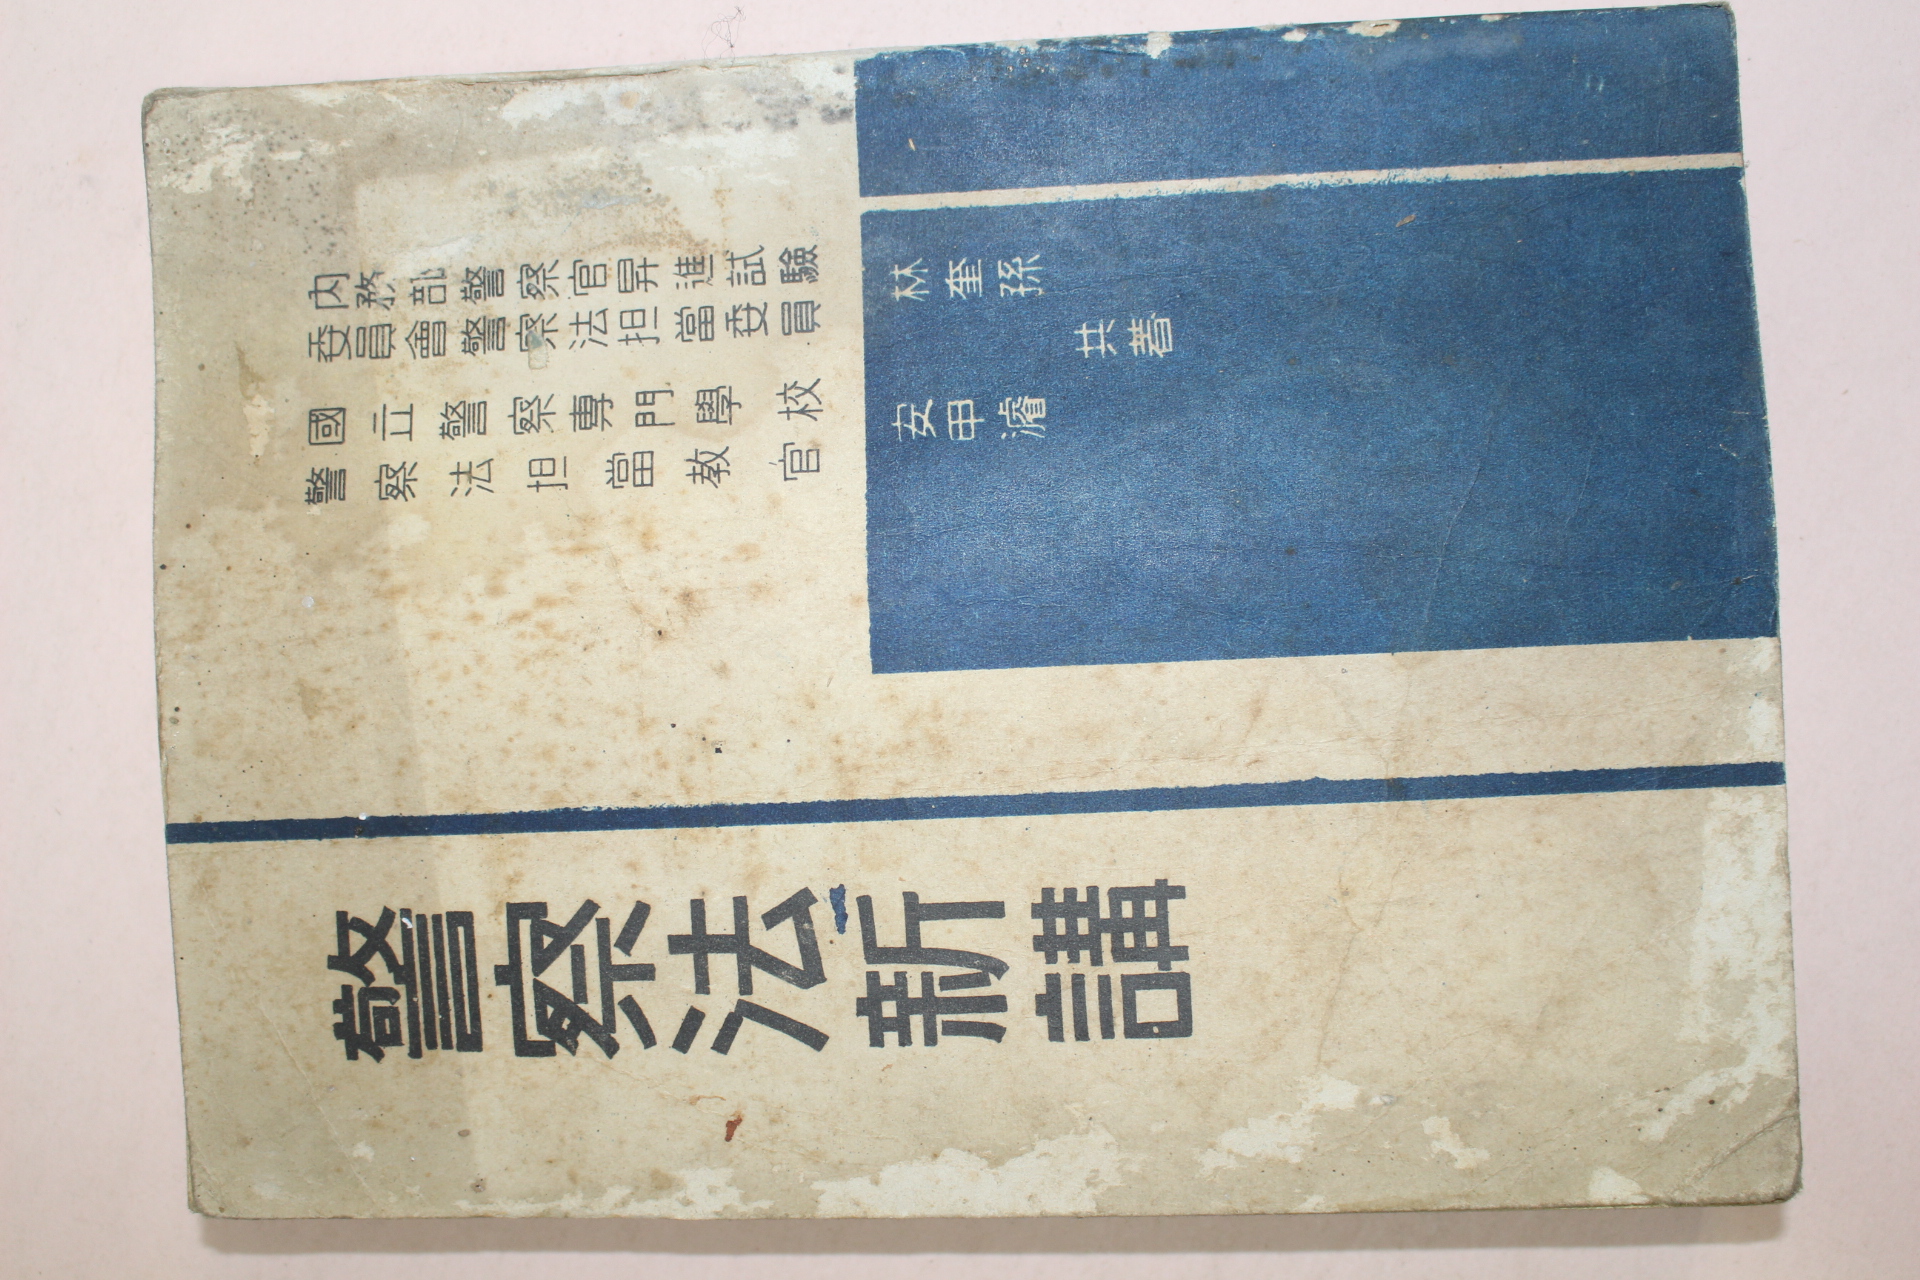 內務部警察官昇進試驗
委員會警察法担當委員
國立警察專門學校
警察法担當教官
林奎孫
安甲濬
共著
警察法新講